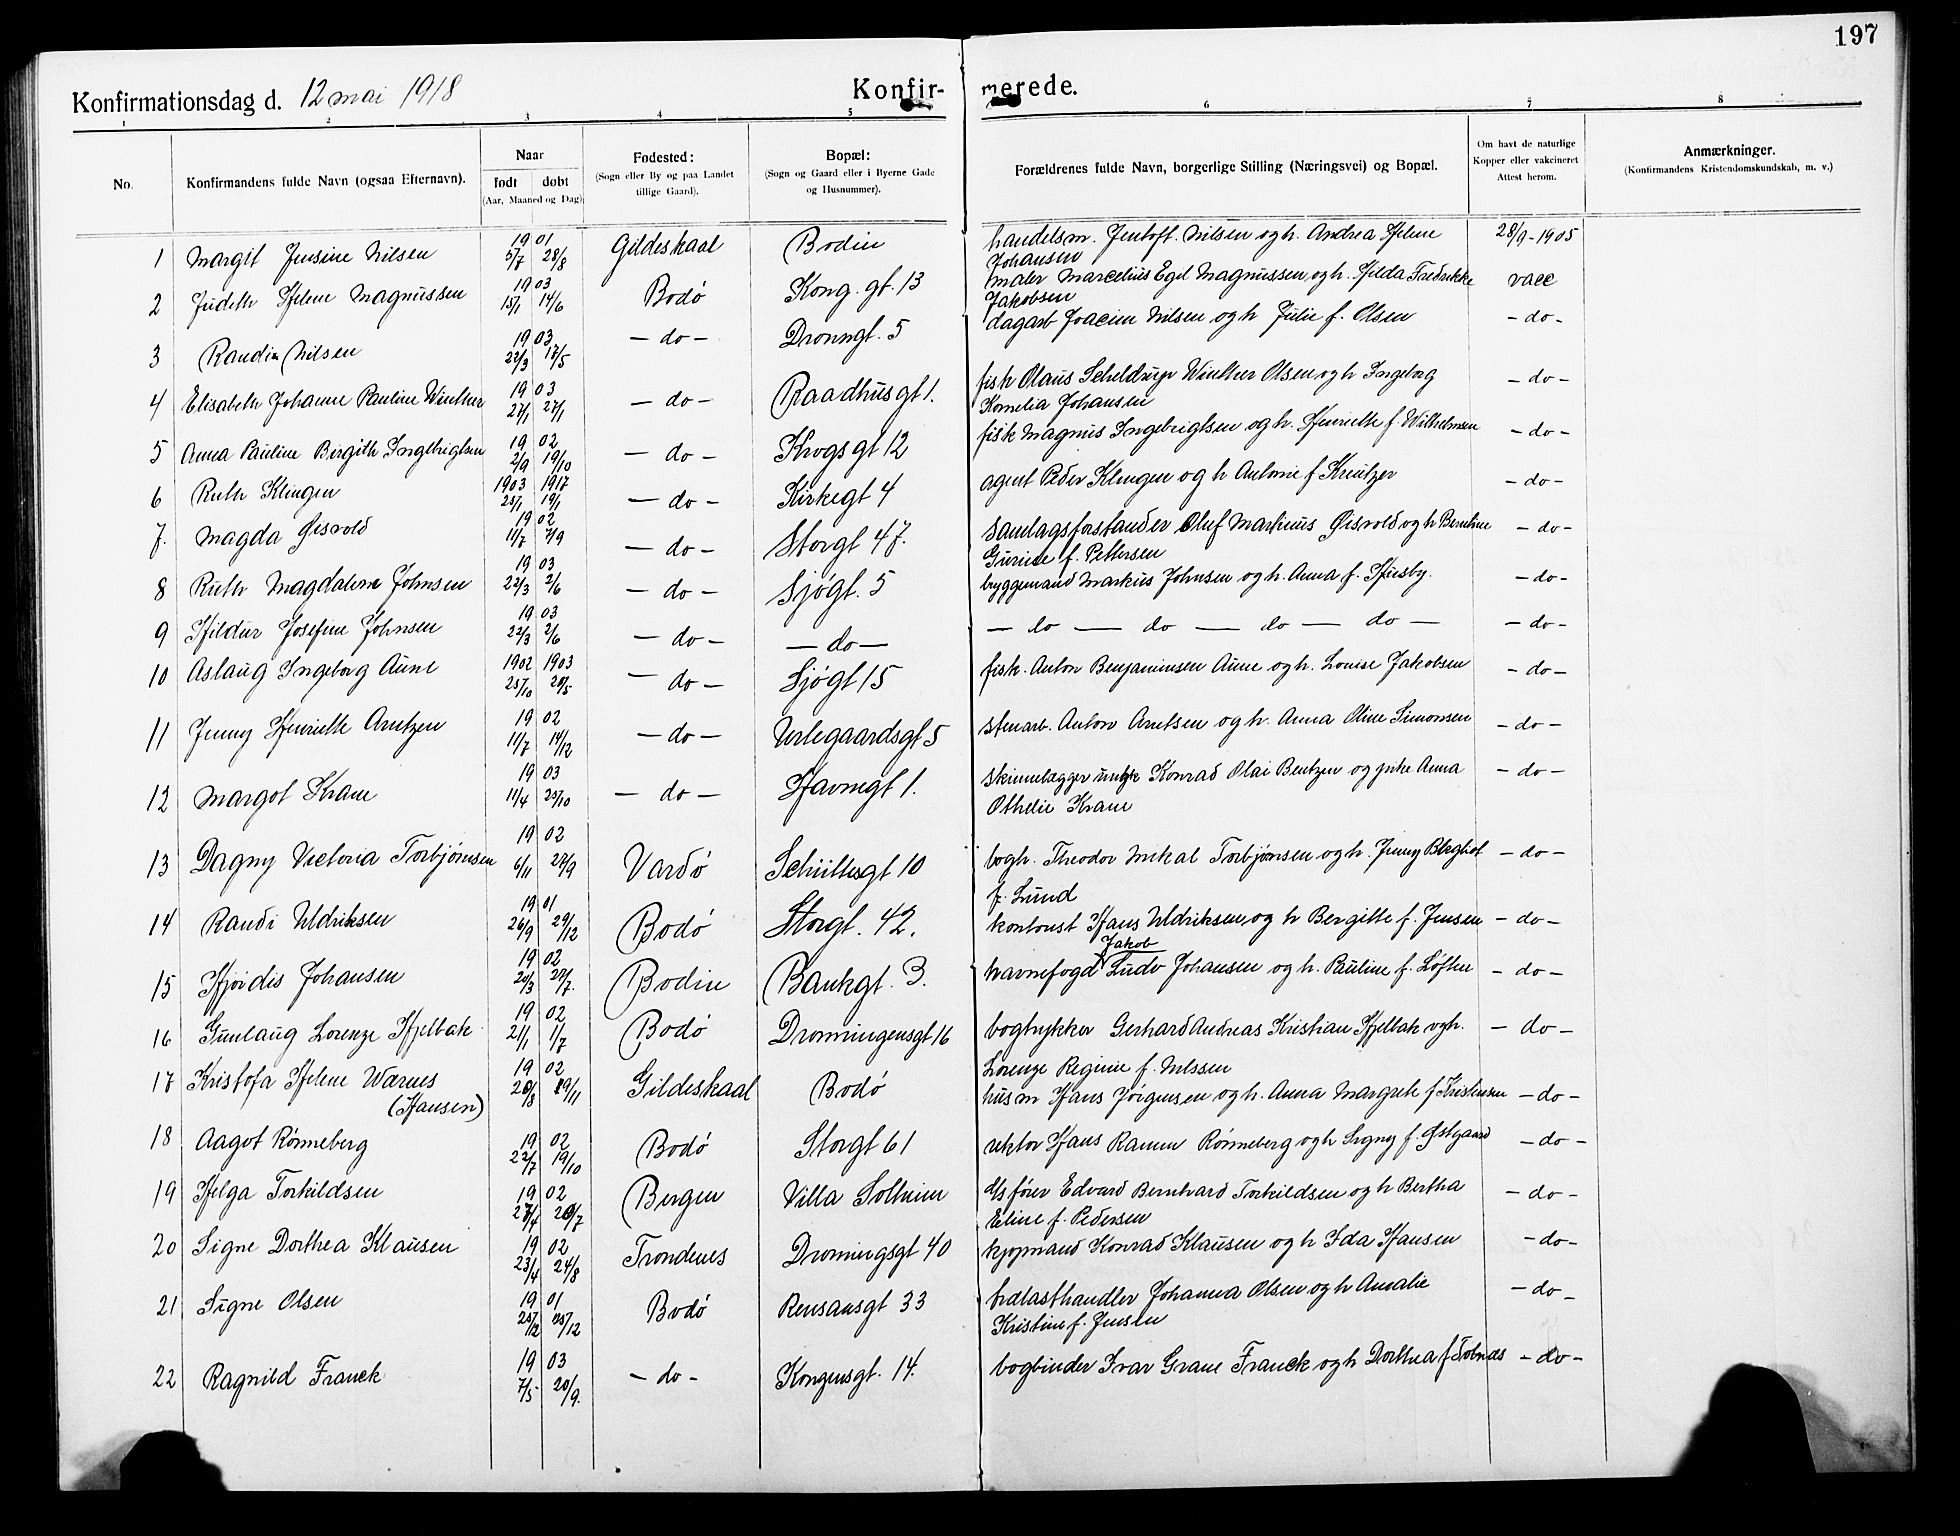 197
Konfirmationsdag d. 12 mai 1918
Konfir- merede.
1 2 3 4 5 6 7 8
No. Konfirmandens fulde Navn (ogsaa Efternavn). Naar født døbt (Aar, Maaned og Dag) Fødested: (Sogn eller By og paa Landet tillige Gaard). Bopæl: (Sogn og Gaard eller i Byerne Gade og Husnummer). Forældrenes fulde Navn, borgerlige Stilling (Næringsvei) og Bopæl. Om havt de naturlige Kopper eller vakcineret Attest herom. Anmærkninger. (Konfirmandens Kristendomskundskab, m. v.)
1 Margit Jensine Nilsen 1901 5/7 28/8 Gildeskaal Bodin handelsm. Jentoft Nilsen og h. Andrea Helene 28/9-1905
Johansen
2 Judith Helene Magnussen 1903 15/1 14/6 Bodø Kong. gt. 13 maler Marcelius Egil Magnussen og h. Hilda Fredrikke vacc
Jakobsen
3 Randin Nilsen 1903 22/3 17/5 - do - Dronngt. 5 dagarb Joacim Nilsen og h Julie f. Olsen - do -
4 Elisabeth Johanne Pauline Winther 1903 27/1 27/1 - do - Raadhusgt 1. fisk Olaus Scheldrup Winther Olsen og h Ingeborg - do -
Kornelia Johansen
5 Anna Pauline Birgith Ingebrigtsen 1902 2/9 19/10 - do - Krogsgt 12 fisk Magnus Ingebrigtsen og h. Henriette f. Wilhelmsen - do -
6 Ruth Klingen 1903 1917 25/1 19/1 - do - Kirkegt 4 agent Peder Klingen og h Antonie f Kreutzer - do -
7. Magda Øisvold 1902 11/7 7/9 - do - Storgt 47. Samlagsforstander Oluf Markus Øisvold og h Berntine - do -
Gurine f. Pettersen
8 Ruth Magdalene Johnsen 1903 22/3 2/6 - do - Sjøgt. 5 bryggemand Markus Johnsen og h. Anna f. Husby. - do -
9 Hildur Josefine Johnsen 1903 22/3 2/6 - do - - do - - do - do - do - do - - do -
10 Aslaug Ingeborg Aune 1902 1903 25/10 20/5 - do - Sjøgt 15 fisk. Anton Benjaminsen Aune og h. Louise Jakobsen - do -
11 Jenny Henriette Arntzen 1902 11/7 14/12 - do - Verlegaardsgt 5 stenarb. Anton Arntsen og h. Anna Oline Simonsen - do -
12 Margot Krane 1903 11/4 25/10 - do - Havnegt 1. Skinnelægger ungk Konrad Olai Bentzen og pike Anna - do -
Othelie Krane
13 Dagny Victoria Torbjørnsen 1902 6/11 27/9 Vardø Schüttesgt 10 bogh. Theodor Mikal Torbjørnsen og h. Jenny Bergliot - do -
f. Lund
14 Randi Uldriksen 1901 26/9 29/12 Bodø Storgt. 42. kontorist Hans Uldriksen og h Bergitte f. Jensen - do -
15 Hjørdis Johansen 1902 20/3 27/7. Bodin Bankgt. 3. havnefogd Jakob Ludv Johansen og h. Pauline f. Løften - do -
16 Gunlaug Lorenze Hjelbak 1902 21/1 1/7 Bodø Dronningensgt 16 bogtrykker Gerhard Andreas Kristian Hjelbak og h. - do -
Lorenze Regine f. Nilssen
17 Kristofa Helene Wærnes 1902 20/8 19/11 Gildeskaal Bodø husm Hans Jørgensen og h. Anna Margrete f Kristensen - do -
(Hansen)
18 Aagot Rønneberg 1902 22/7 19/10 Bodø Storgt 61 rektor Hans Ramm Rønneberg og h Signy f. Østgaard - do -
19 Helga Torkildsen 1902 27/4 20/7 Bergen Villa Solheim fører Edvard Bernhard Torkildsen og h Bertha - do -
Eline f. Pedersen
20 Signe Dorthea Klausen 1902 23/4 24/8 Trondenes Dronningsgt 40 kjøpmand Konrad Klausen og h Ida Hansen - do -
21 Signe Olsen 1901 25/12 Bodø Rensaasgt 33 trælasthandler Johannes Olsen og h Amalie - do -
Kristine f. Jensen
22 Ragnild Franck 1903 7/5 20/9. - do - Kongensgt. 14. bogbinder Ivar Grane Franck og h Dorthea f Tolnæs - do -